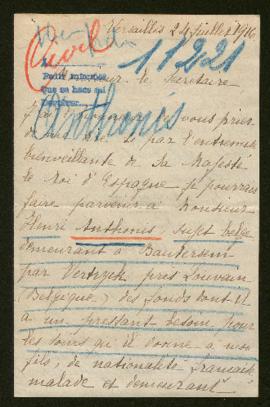 Versailles 24 Juillet 1916
Civil
11221
Pedir informes
que se hace sui
le Secrétaire
Anthonis
vous prier
de par l'entremise
bienveillante de Sa Majesté
le Roi d'Espagne je pourrais
faire parvenir à Monsieur
Henri Anthonis, sujet belge
demeurant à Bautersem
par Vertryck près Louvain
(Belgique), des fonds dont il
a un pressant besoin pour
les soins qu'il donne à mon
fils, de nationalité française
malade et demeurant